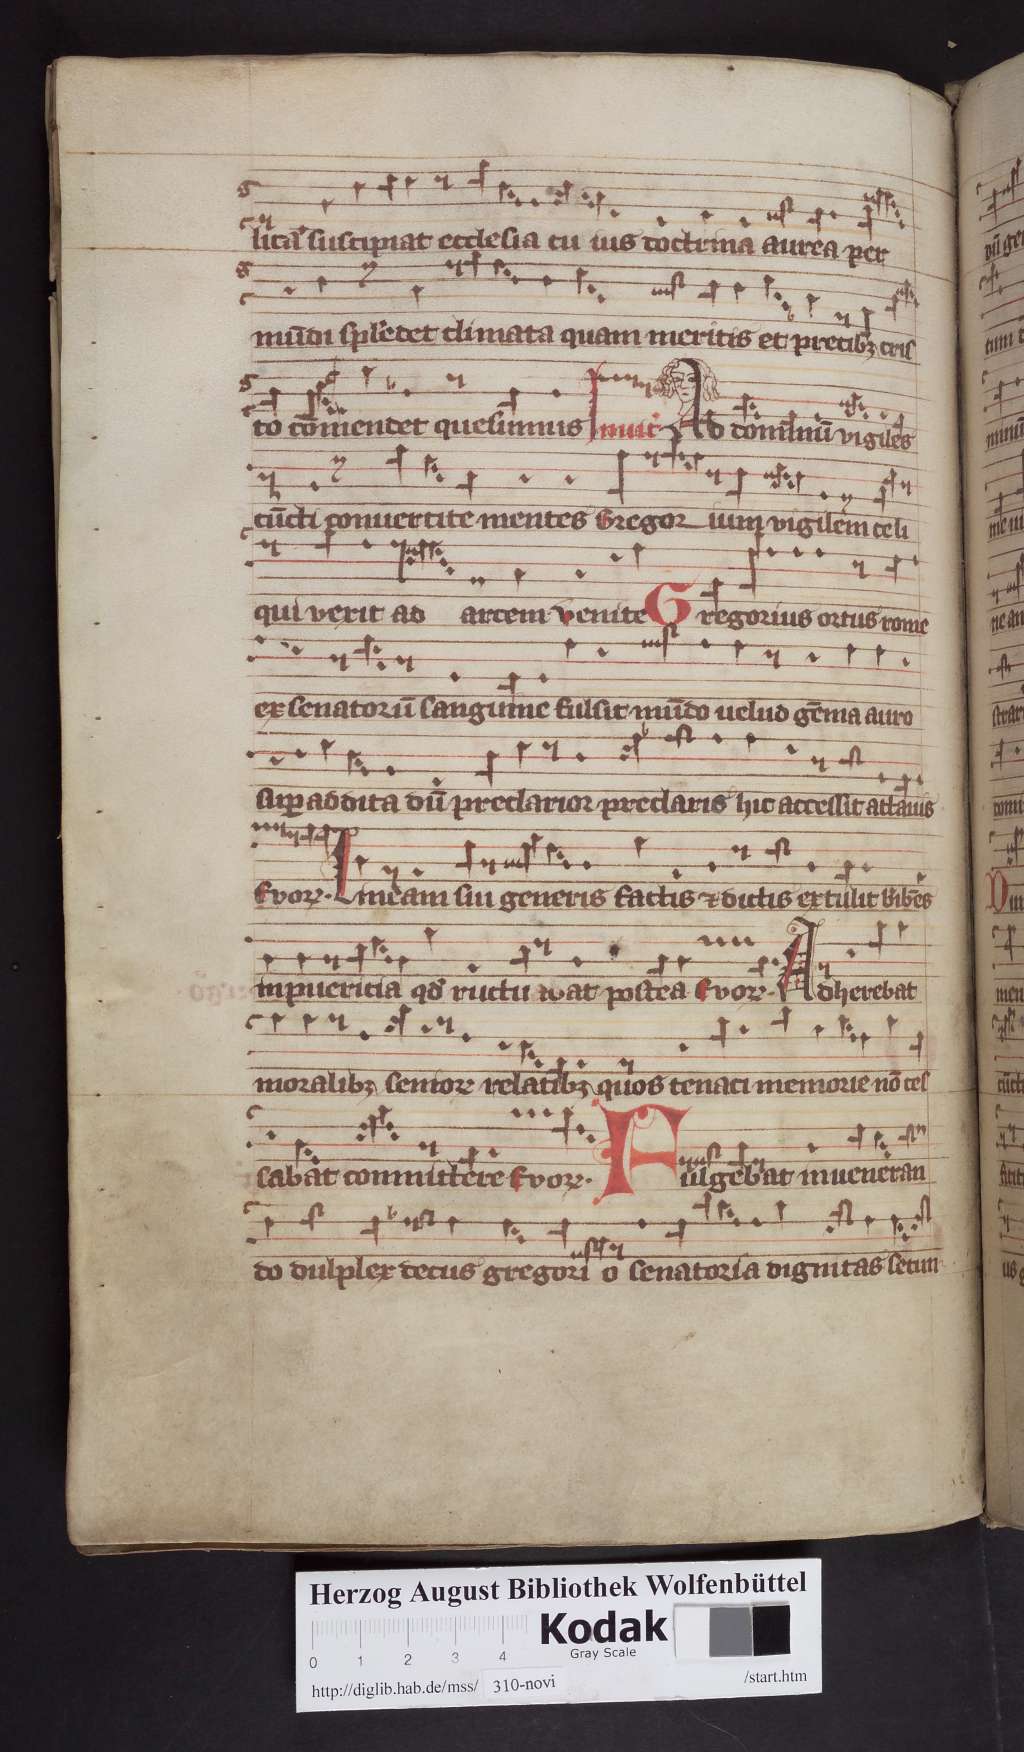 litas suscipiat ecclesia cu ius doctrina aurea per
mūdi splēdet climata quam meritis et precibꝫ cris
to cōmendet quesumus Inuit Ad dominū vigiles
cūcti conuertite mentes Gregor ium vigilem celi
qui verit ad arcem venite Gregorius ortus rome
ex senatorū sanguine fulsit mūdo uelud gēma auro
sup addita dū preclarior preclaris hic accessit attauis
Evoꝝ. Lineam sui generis factis ⁊ dictis extulit bibēs
in puericia qd ructu at postea Evoꝝ. Adherebat
moralibꝫ senioꝝ relatibꝫ quos tenaci memorie nō ces
sabat committere Evoꝝ. Fulgebat in ueneran
do duplex decus gregori o senatoria dignitas secun
Herzog August Bibliothek Wolfenbüttel
Kodak
Gray Scale
0 1 2 3 4
http://diglib.hab.de/mss/ 310-novi /start.htm